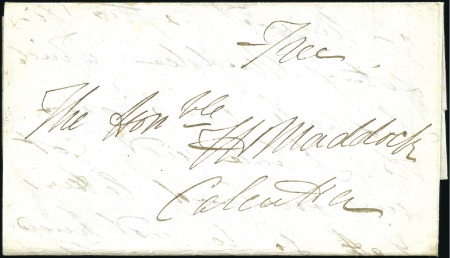 Free
The Honble
H Maddock
Calcutta